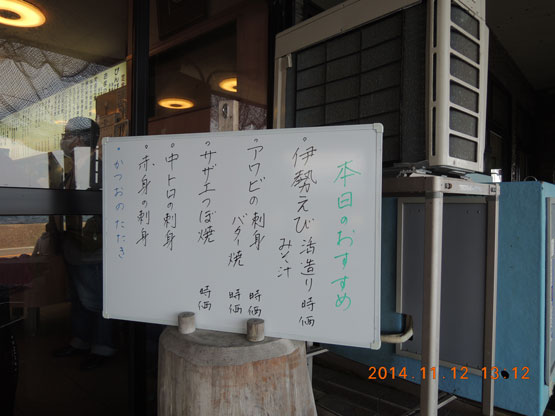 本日のおすすめ
・伊勢えび 活造り 時価
みそ汁
・アワビの刺身 時価
バター焼 時価
・サザエつぼ焼 時価
・中トロの刺身
・赤身の刺身
・かつおのたたき
2014.11.12 13:12